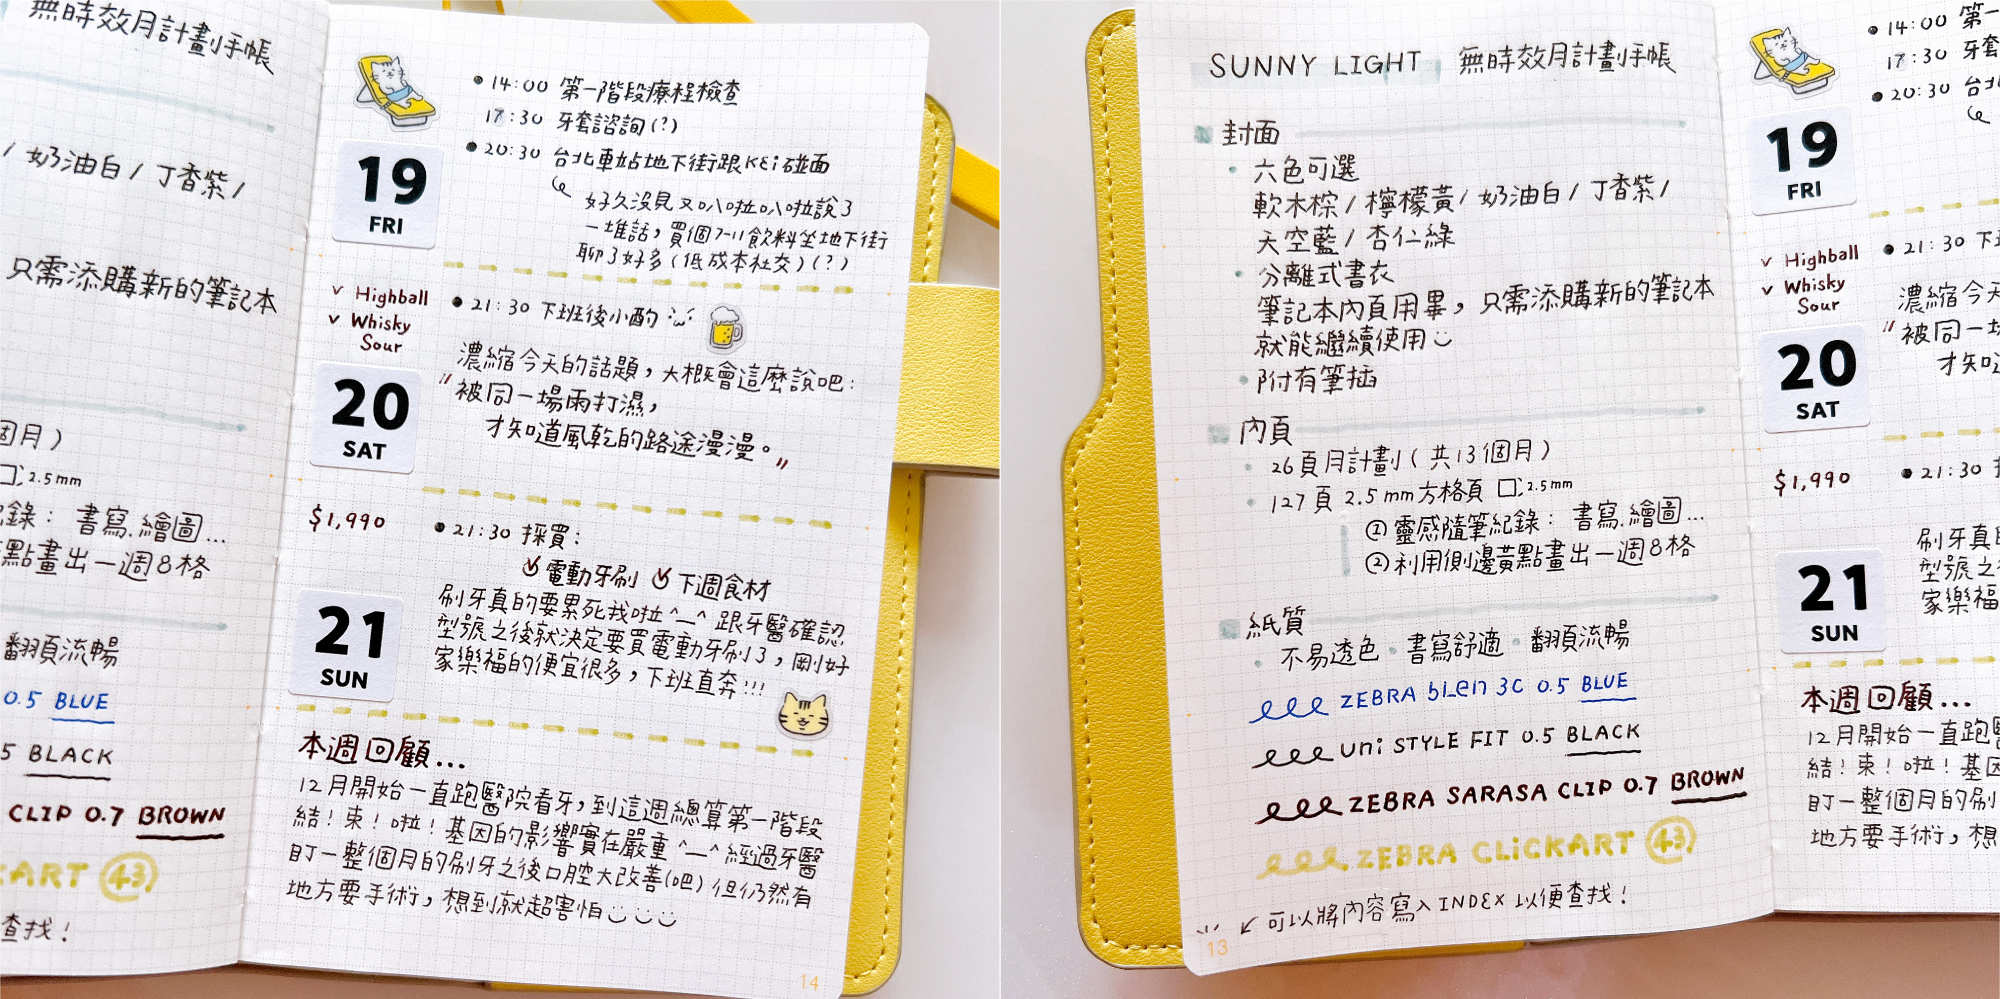 無時效月計劃手帳
/ 奶油白 / 丁香紫 /
只需添購新的筆記本
個月)
2.5mm
紀錄：書寫.繪圖...
黃點畫出一週8格
翻頁流暢
0.5 BLUE
5 BLACK
CLIP 0.7 BROWN
CKART 43
查找！
14:00 第一階段療程檢查
17:30 牙套諮詢(?)
20:30 台北車站地下街跟Kei碰面
好久沒見又叭啦叭啦說了
一堆話，買個7-11飲料坐地下街
聊了好多(低成本社交)(?)
19
FRI
✓ Highball
✓ Whisky
Sour
21:30 下班後小酌
濃縮今天的話題，大概會這麼說吧：
"被同一場雨打濕，
才知道風乾的路途漫漫。"
20
SAT
$1,990
21:30 採買：
電動牙刷 下週食材
刷牙真的要累死我啦^_^ 跟牙醫確認
型號之後就決定要買電動牙刷了，剛好
家樂福的便宜很多，下班直奔!!!
21
SUN
本週回顧...
12月開始一直跑醫院看牙，到這週總算第一階段
結！束！啦！基因的影響實在嚴重^_^經過牙醫
盯一整個月的刷牙之後口腔大改善(吧)但仍然有
地方要手術，想到就超害怕
14
SUNNY LIGHT 無時效月計劃手帳
封面
• 六色可選
軟木棕 / 檸檬黃 / 奶油白 / 丁香紫 /
天空藍 / 杏仁綠
• 分離式書衣
筆記本內頁用畢，只需添購新的筆記本
就能繼續使用
• 附有筆插
內頁
• 26頁月計劃(共13個月)
• 127頁 2.5mm方格頁 2.5mm
① 靈感隨筆紀錄：書寫.繪圖...
② 利用側邊黃點畫出一週8格
紙質
• 不易透色 • 書寫舒適 • 翻頁流暢
ZEBRA bLen 3C 0.5 BLUE
uni STYLE FIT 0.5 BLACK
ZEBRA SARASA CLIP 0.7 BROWN
ZEBRA CLiCKART 43
↙ 可以將內容寫入INDEX以便查找！
13
14:00 第一
17:30 牙套
20:30 台北
19
FRI
✓ Highball
✓ Whisky
Sour
21:30 下
濃縮今天
"被同一場
才知
20
SAT
$1,990
21:30
刷牙真的
型號之
家樂福
21
SUN
本週回顧...
12月開始一直跑醫
結！束！啦！基因
盯一整個月的刷
地方要手術，想